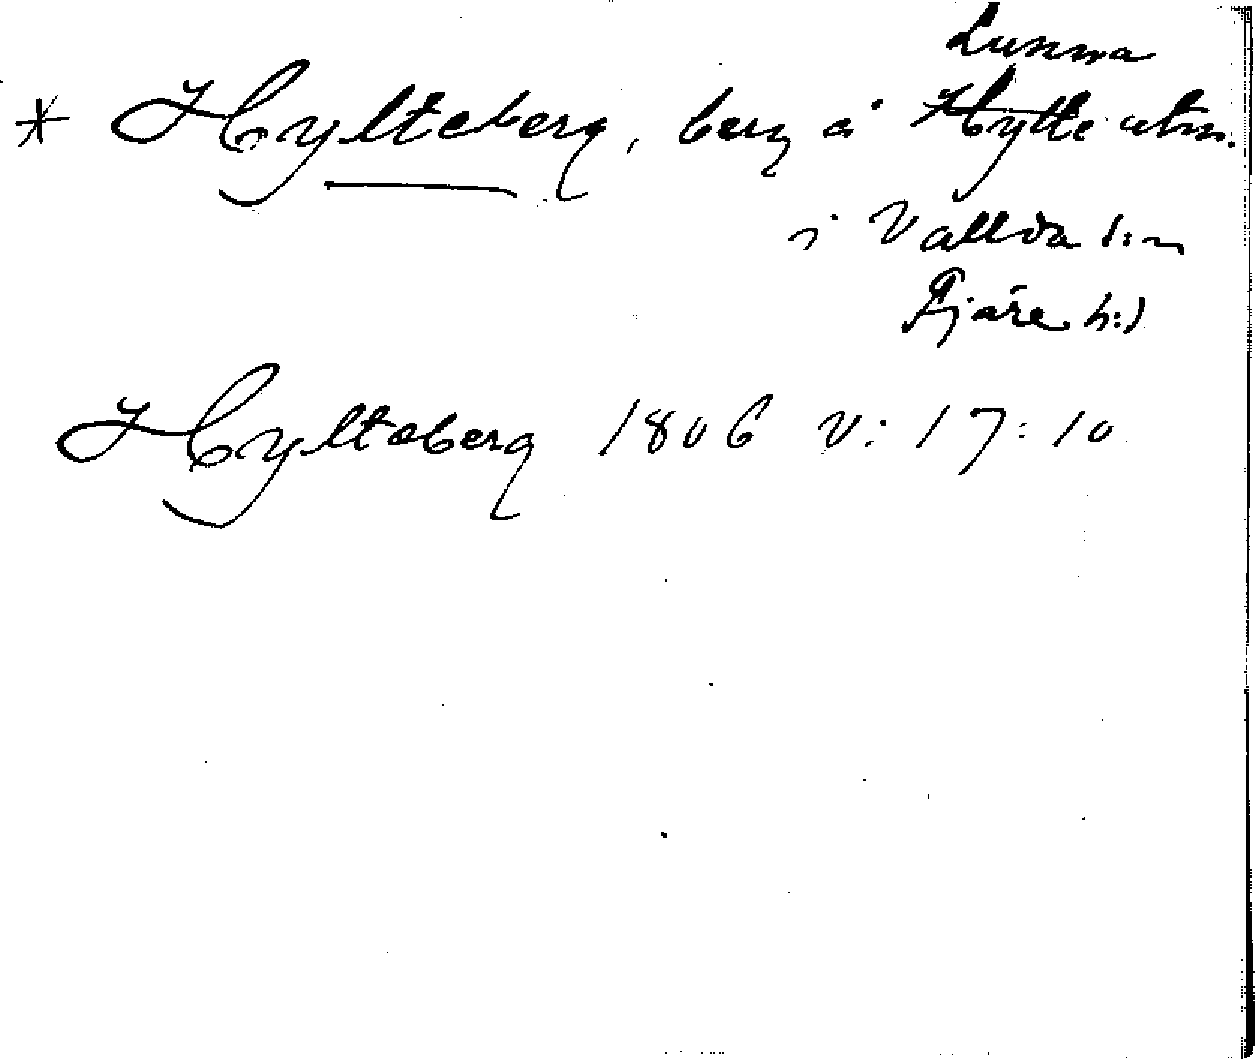 Lunna
* Hylteberg, berg å Hylte utm.
i Vallda s:n
Fjäre h:d
Hylteberg 1806 V: 17: 10